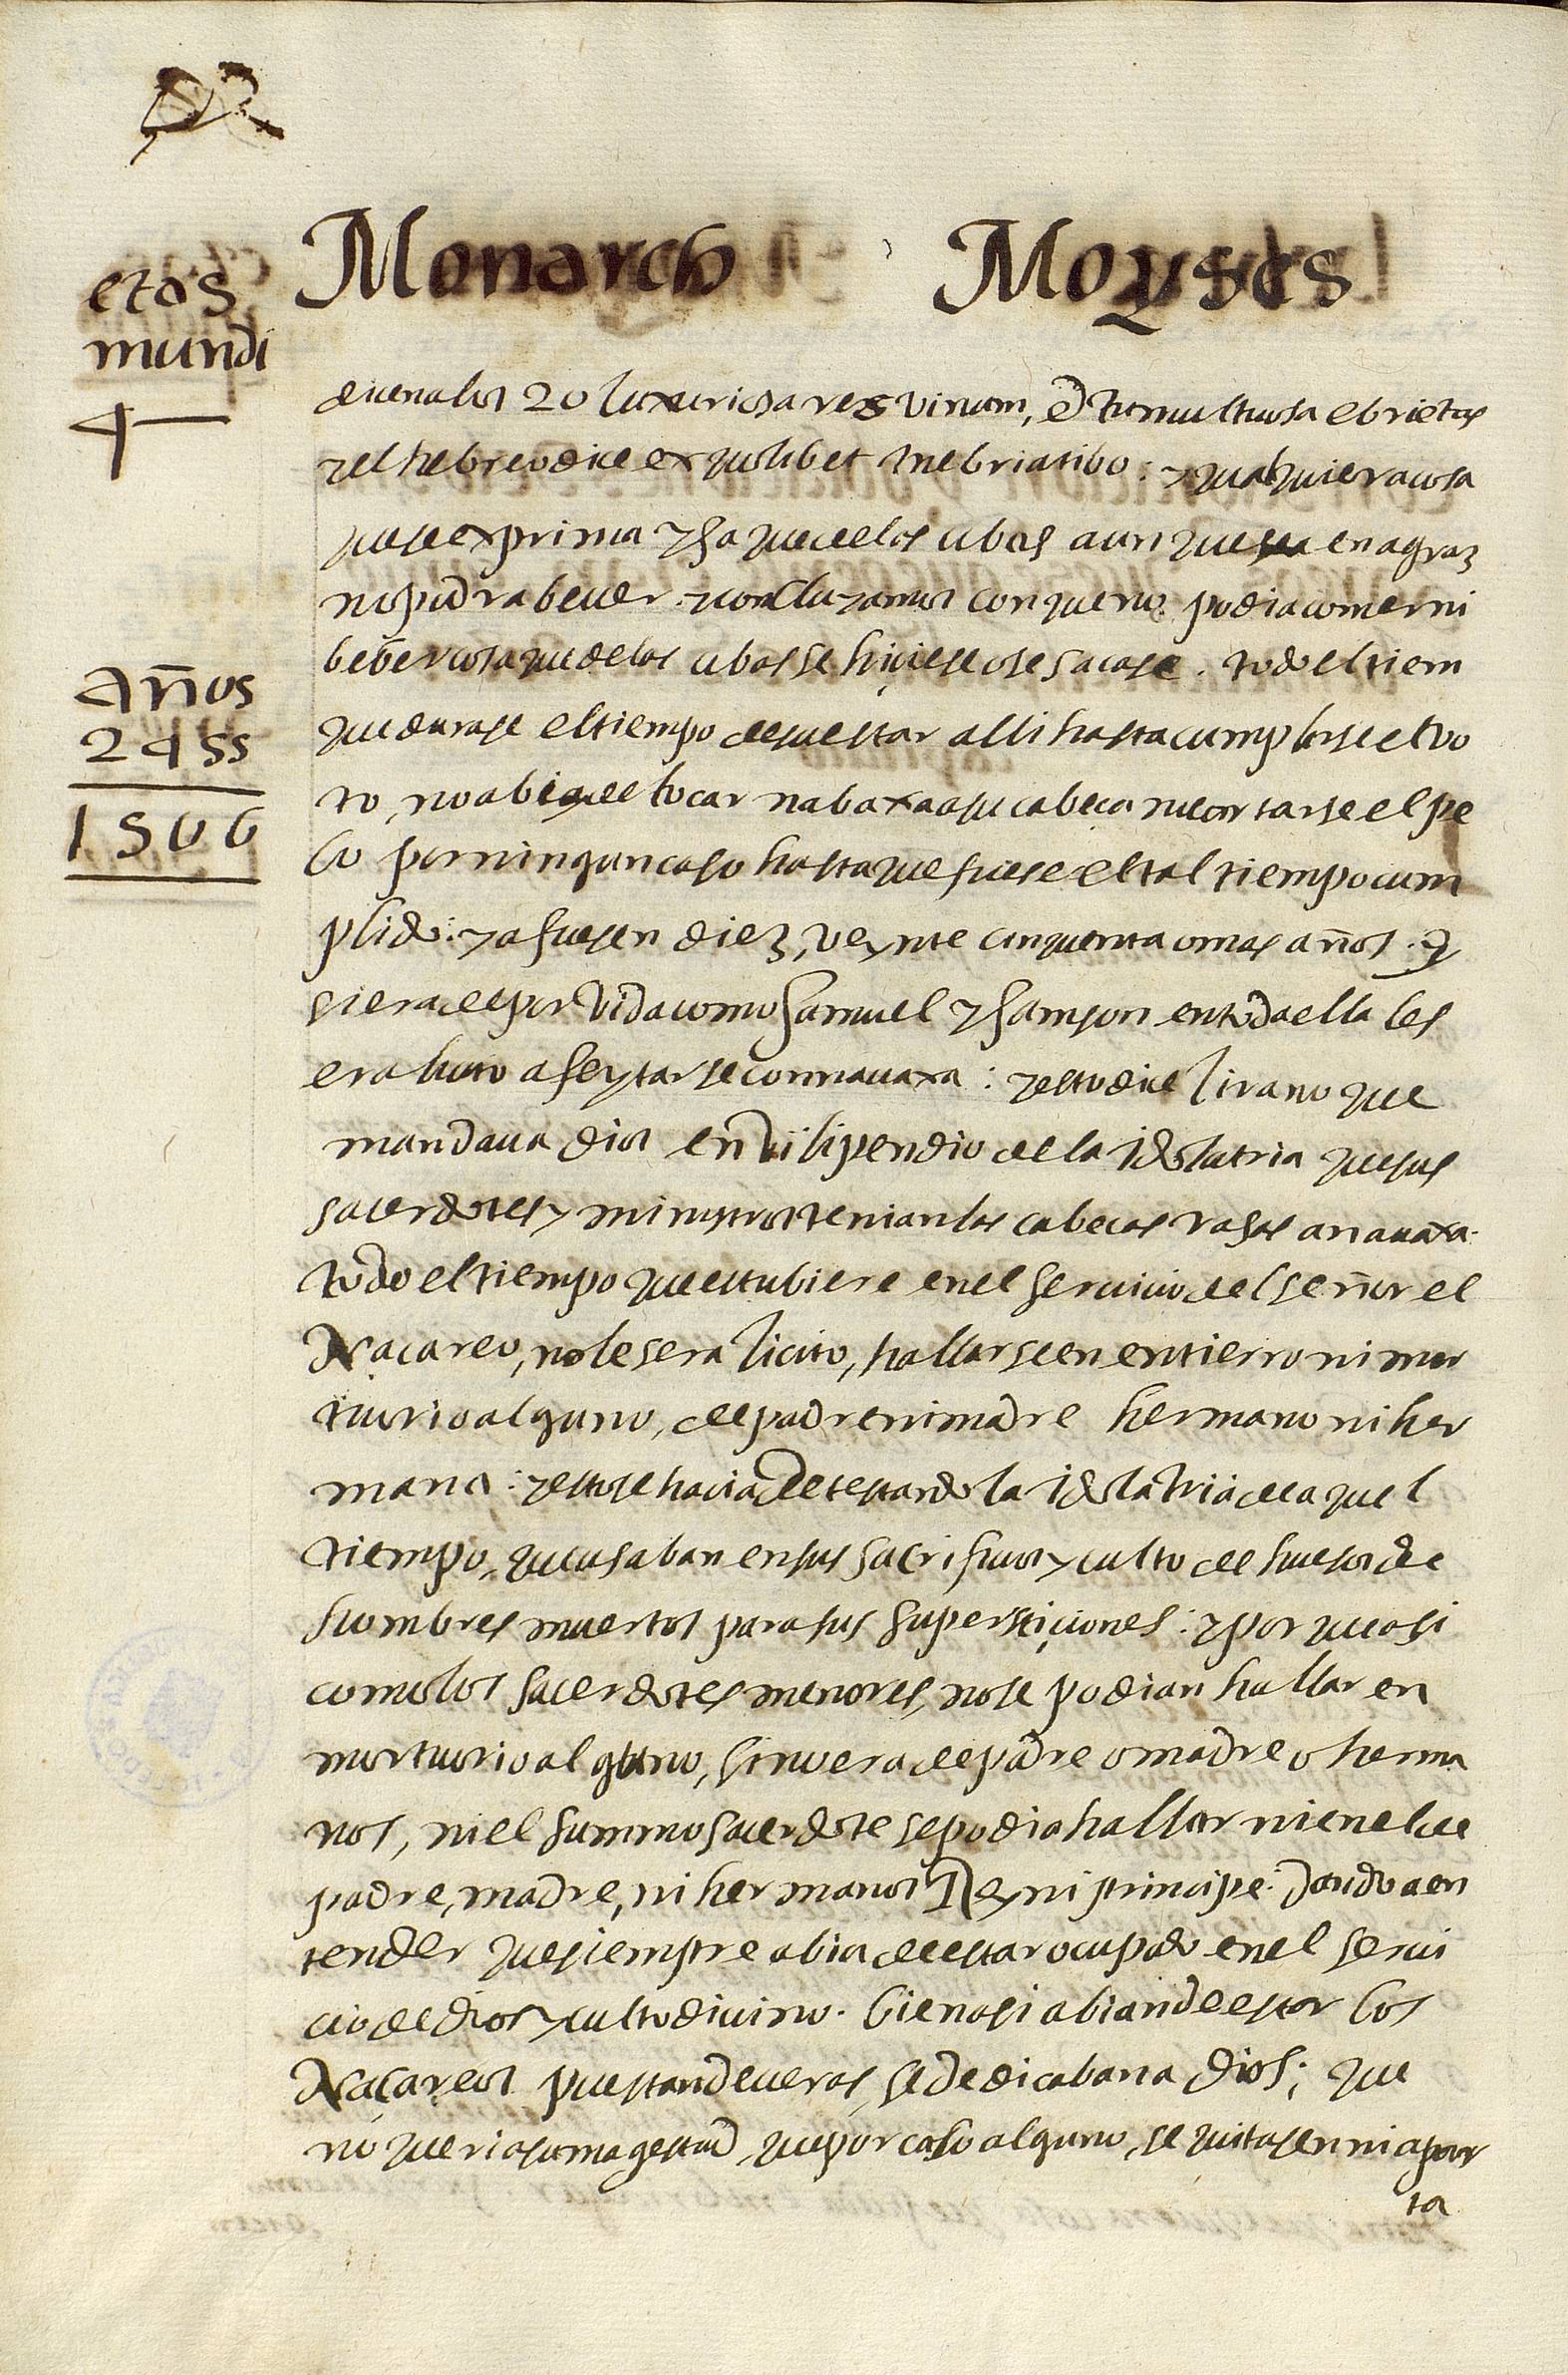 Monarch Moyses
etas
mundi
4
Años
2455
1506
dicen a los 20 luxuriosa res vinum, et tumultuosa ebrietas
y el hebreo dice ex quolibet inebriatibo: y qualquiera cosa
que se exprima y saque de las ubas aunque sea en agraz
no podra bever. y concluyamos con que no podia comer ni
beber cosa que de las ubas se hiçiese o se sacase. todo el tiem
que durase el tiempo de su estar alli hasta cumplirse el vo
to, no abia de tocar nabaxa a su cabeça ni cortarse el pe
lo por ningun caso hasta que fuese el tal tiempo cum
plido: ya fuesen diez, veynte cinquenta o mas años. y
si era de por vida como Samuel y Samson en toda ella les
era licito afeytarse con navaxa: y esto dice lirano que
mandava dios en vilipendio de la idolatria que sus
sacerdotes y ministros tenian las cabeças rasas a navaxa.
todo el tiempo que estubiere en el servicio del señor el
Naçareo, no le sera licito, hallarse en entierro ni mor
tuorio alguno, de padre ni madre hermano ni her
mana: y esto se hacia detestando la idolatria de aquel
tiempo, que usaban en sus sacrificios y culto de huesos de
hombres muertos para sus supersticiones: y por que asi
como los sacerdotes menores, no se podian hallar en
mortuorio alguno, sino era de padre o madre o herma
nos, ni el summo sacerdote se podia hallar ni en el de
padre, madre, ni hermanos Rey ni principe. dando a en
tender que siempre abia de estar ocupado en el servi
cio de dios y culto divino. bien asi abian de estar los
Naçareos pues tan de veras, se dedicaban a dios; que
no queria su magestad, que por caso alguno, se quitasen ni apar
ta